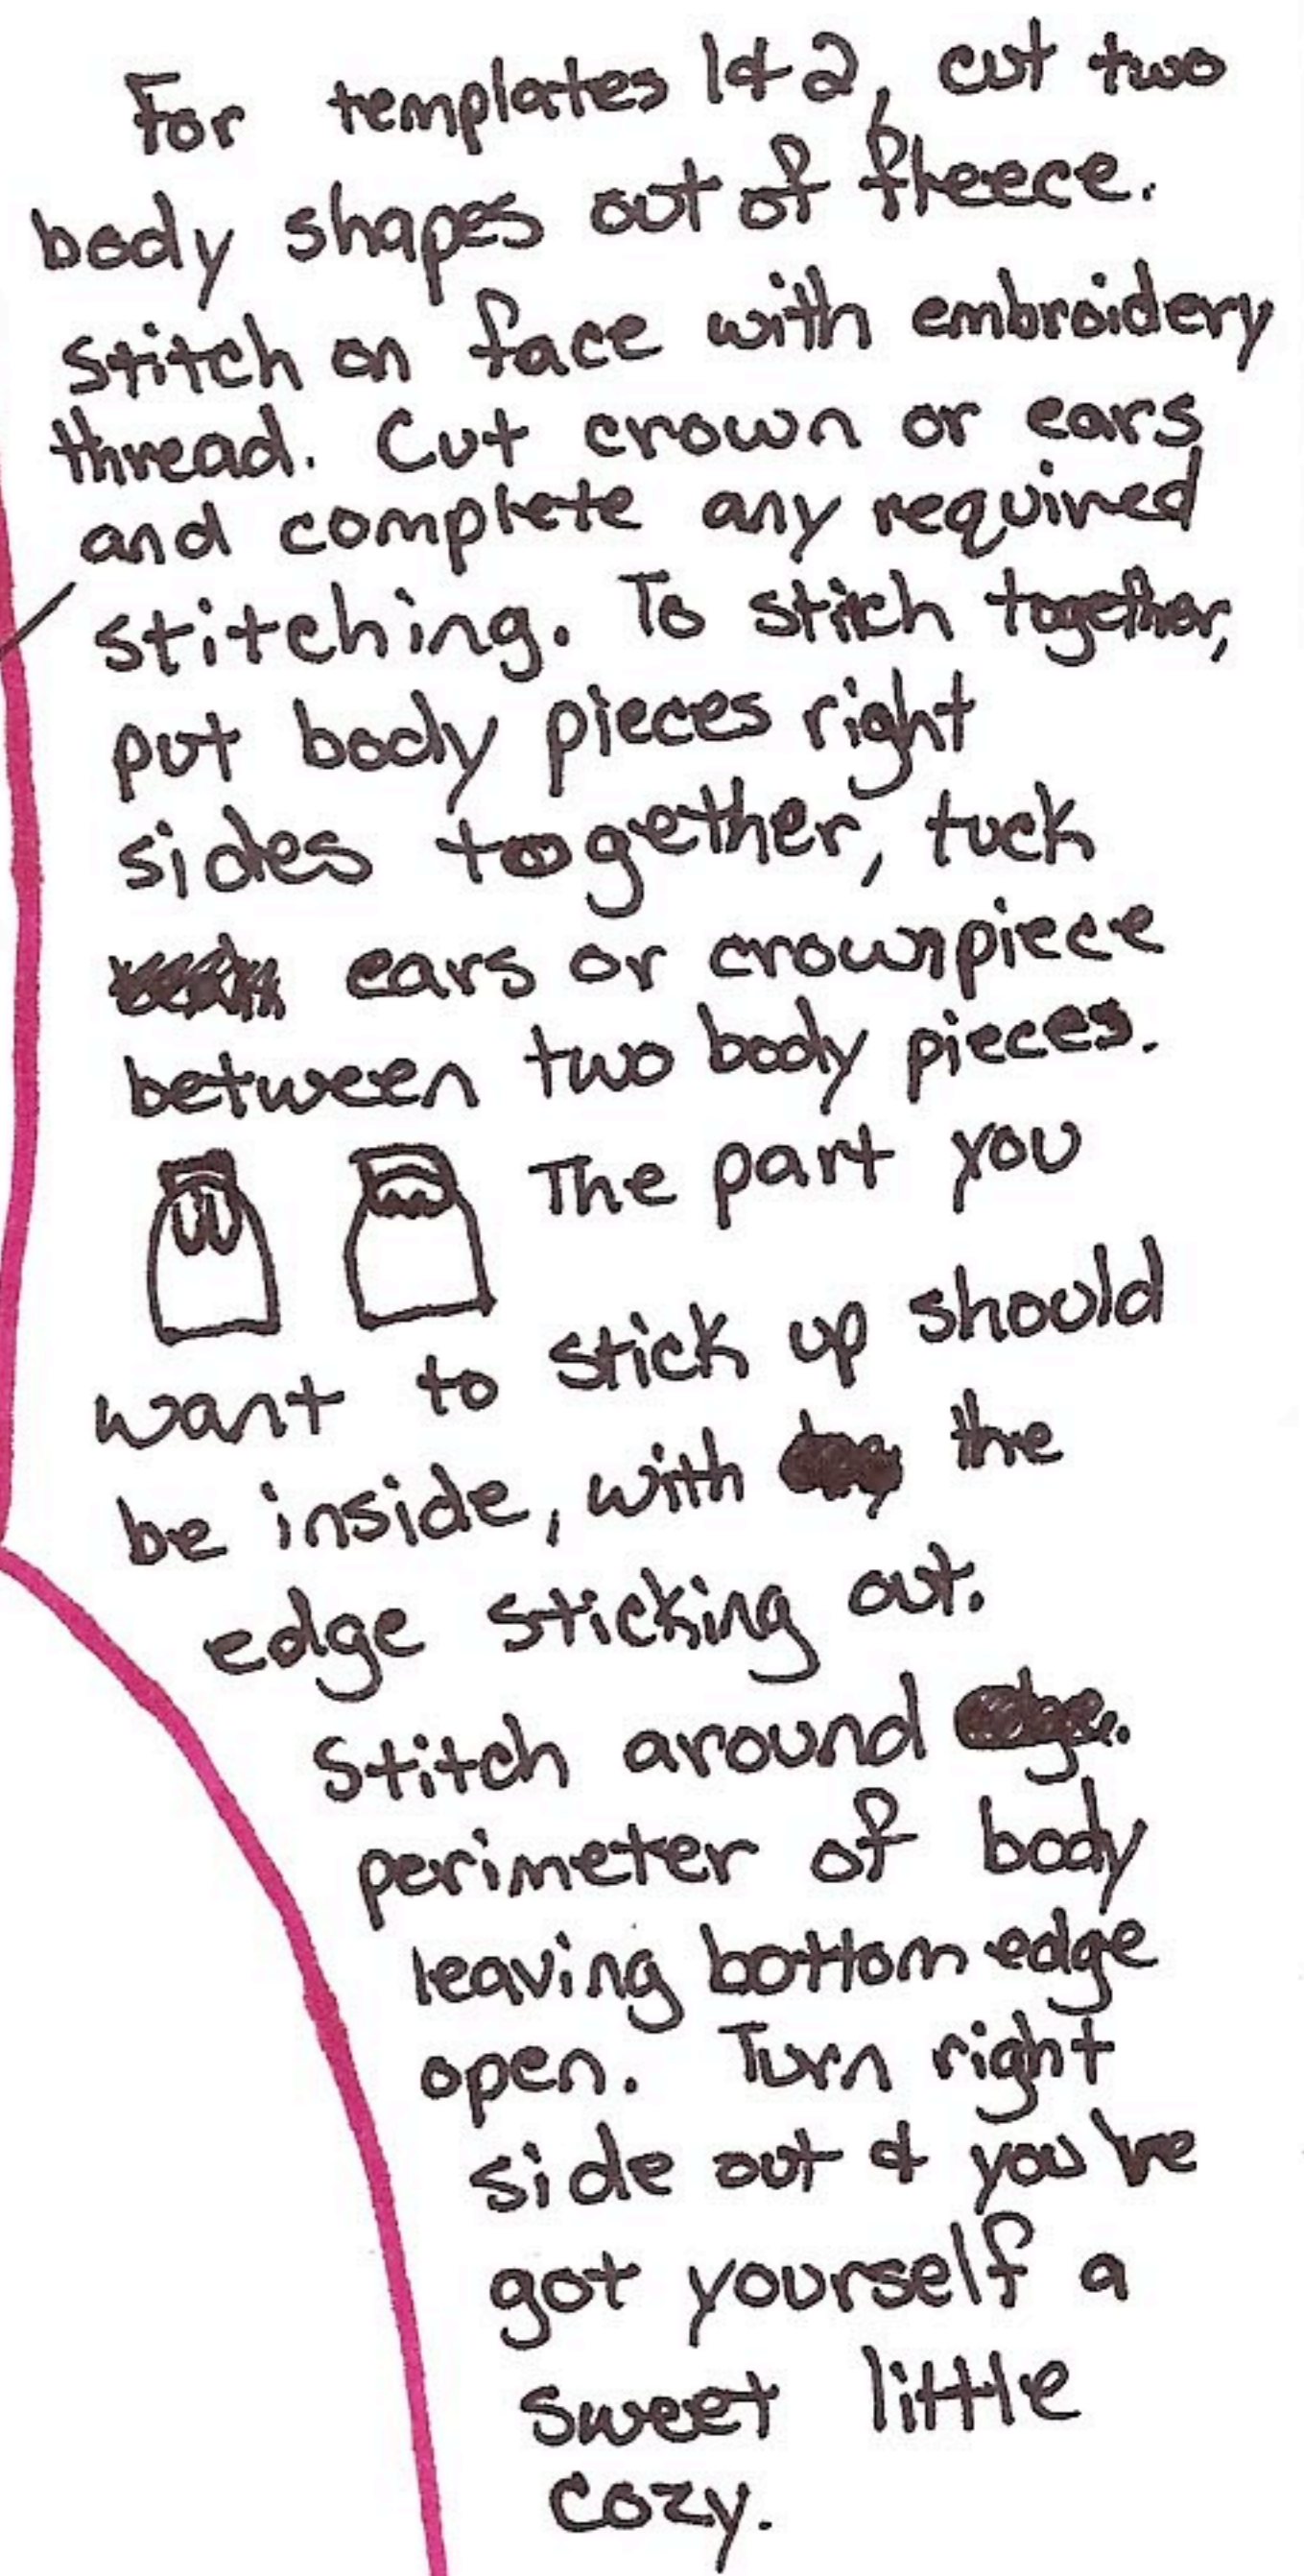 For templates 1 & 2, cut two
body shapes out of fleece.
Stitch on face with embroidery
thread. Cut crown or ears
and complete any required
stitching. To stitch together,
put body pieces right
sides together, tuck
ears or crown piece
between two body pieces.
The part you
want to stick up should
be inside, with the
edge sticking out.
Stitch around
perimeter of body
leaving bottom edge
open. Turn right
side out & you've
got yourself a
sweet little
cozy.